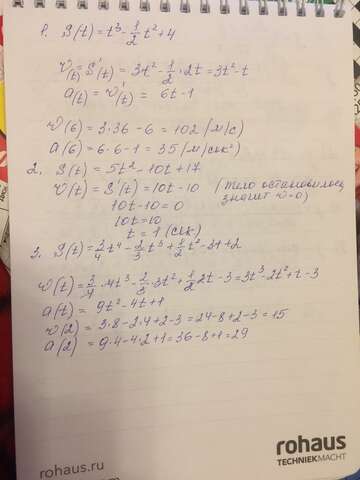 1. S(t) = t³ - 1/2 t² + 4
v(t) = S'(t) = 3t² - 1/2 · 2t = 3t² - t
a(t) = v'(t) = 6t - 1
v(6) = 3 · 36 - 6 = 102 (м/с)
a(6) = 6 · 6 - 1 = 35 (м/сек²)
2. S(t) = 5t² - 10t + 17
v(t) = S'(t) = 10t - 10 (тело остановилось,
значит v = 0)
10t - 10 = 0
10t = 10
t = 1 (сек)
3. S(t) = 3/4 t⁴ - 2/3 t³ + 1/2 t² - 3t + 2
v(t) = 3/4 · 4t³ - 2/3 · 3t² + 1/2 2t - 3 = 3t³ - 2t² + t - 3
a(t) = 9t² - 4t + 1
v(2) = 3 · 8 - 2 · 4 + 2 - 3 = 24 - 8 + 2 - 3 = 15
a(2) = 9 · 4 - 4 · 2 + 1 = 36 - 8 + 1 = 29
rohaus
TECHNIEKMACHT
rohaus.ru